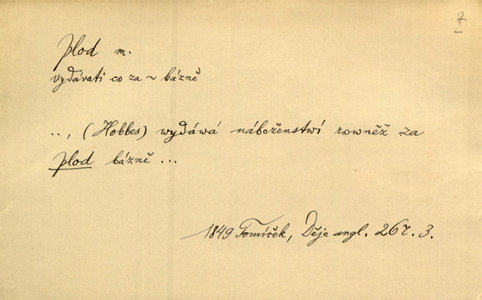 7
plod m.
vydávati co za ~ bázně
.., (Hobbes) wydáwá náboženstwí rowněž za
plod bázně ...
1849 Tomíček, Děje angl. 267. 3.